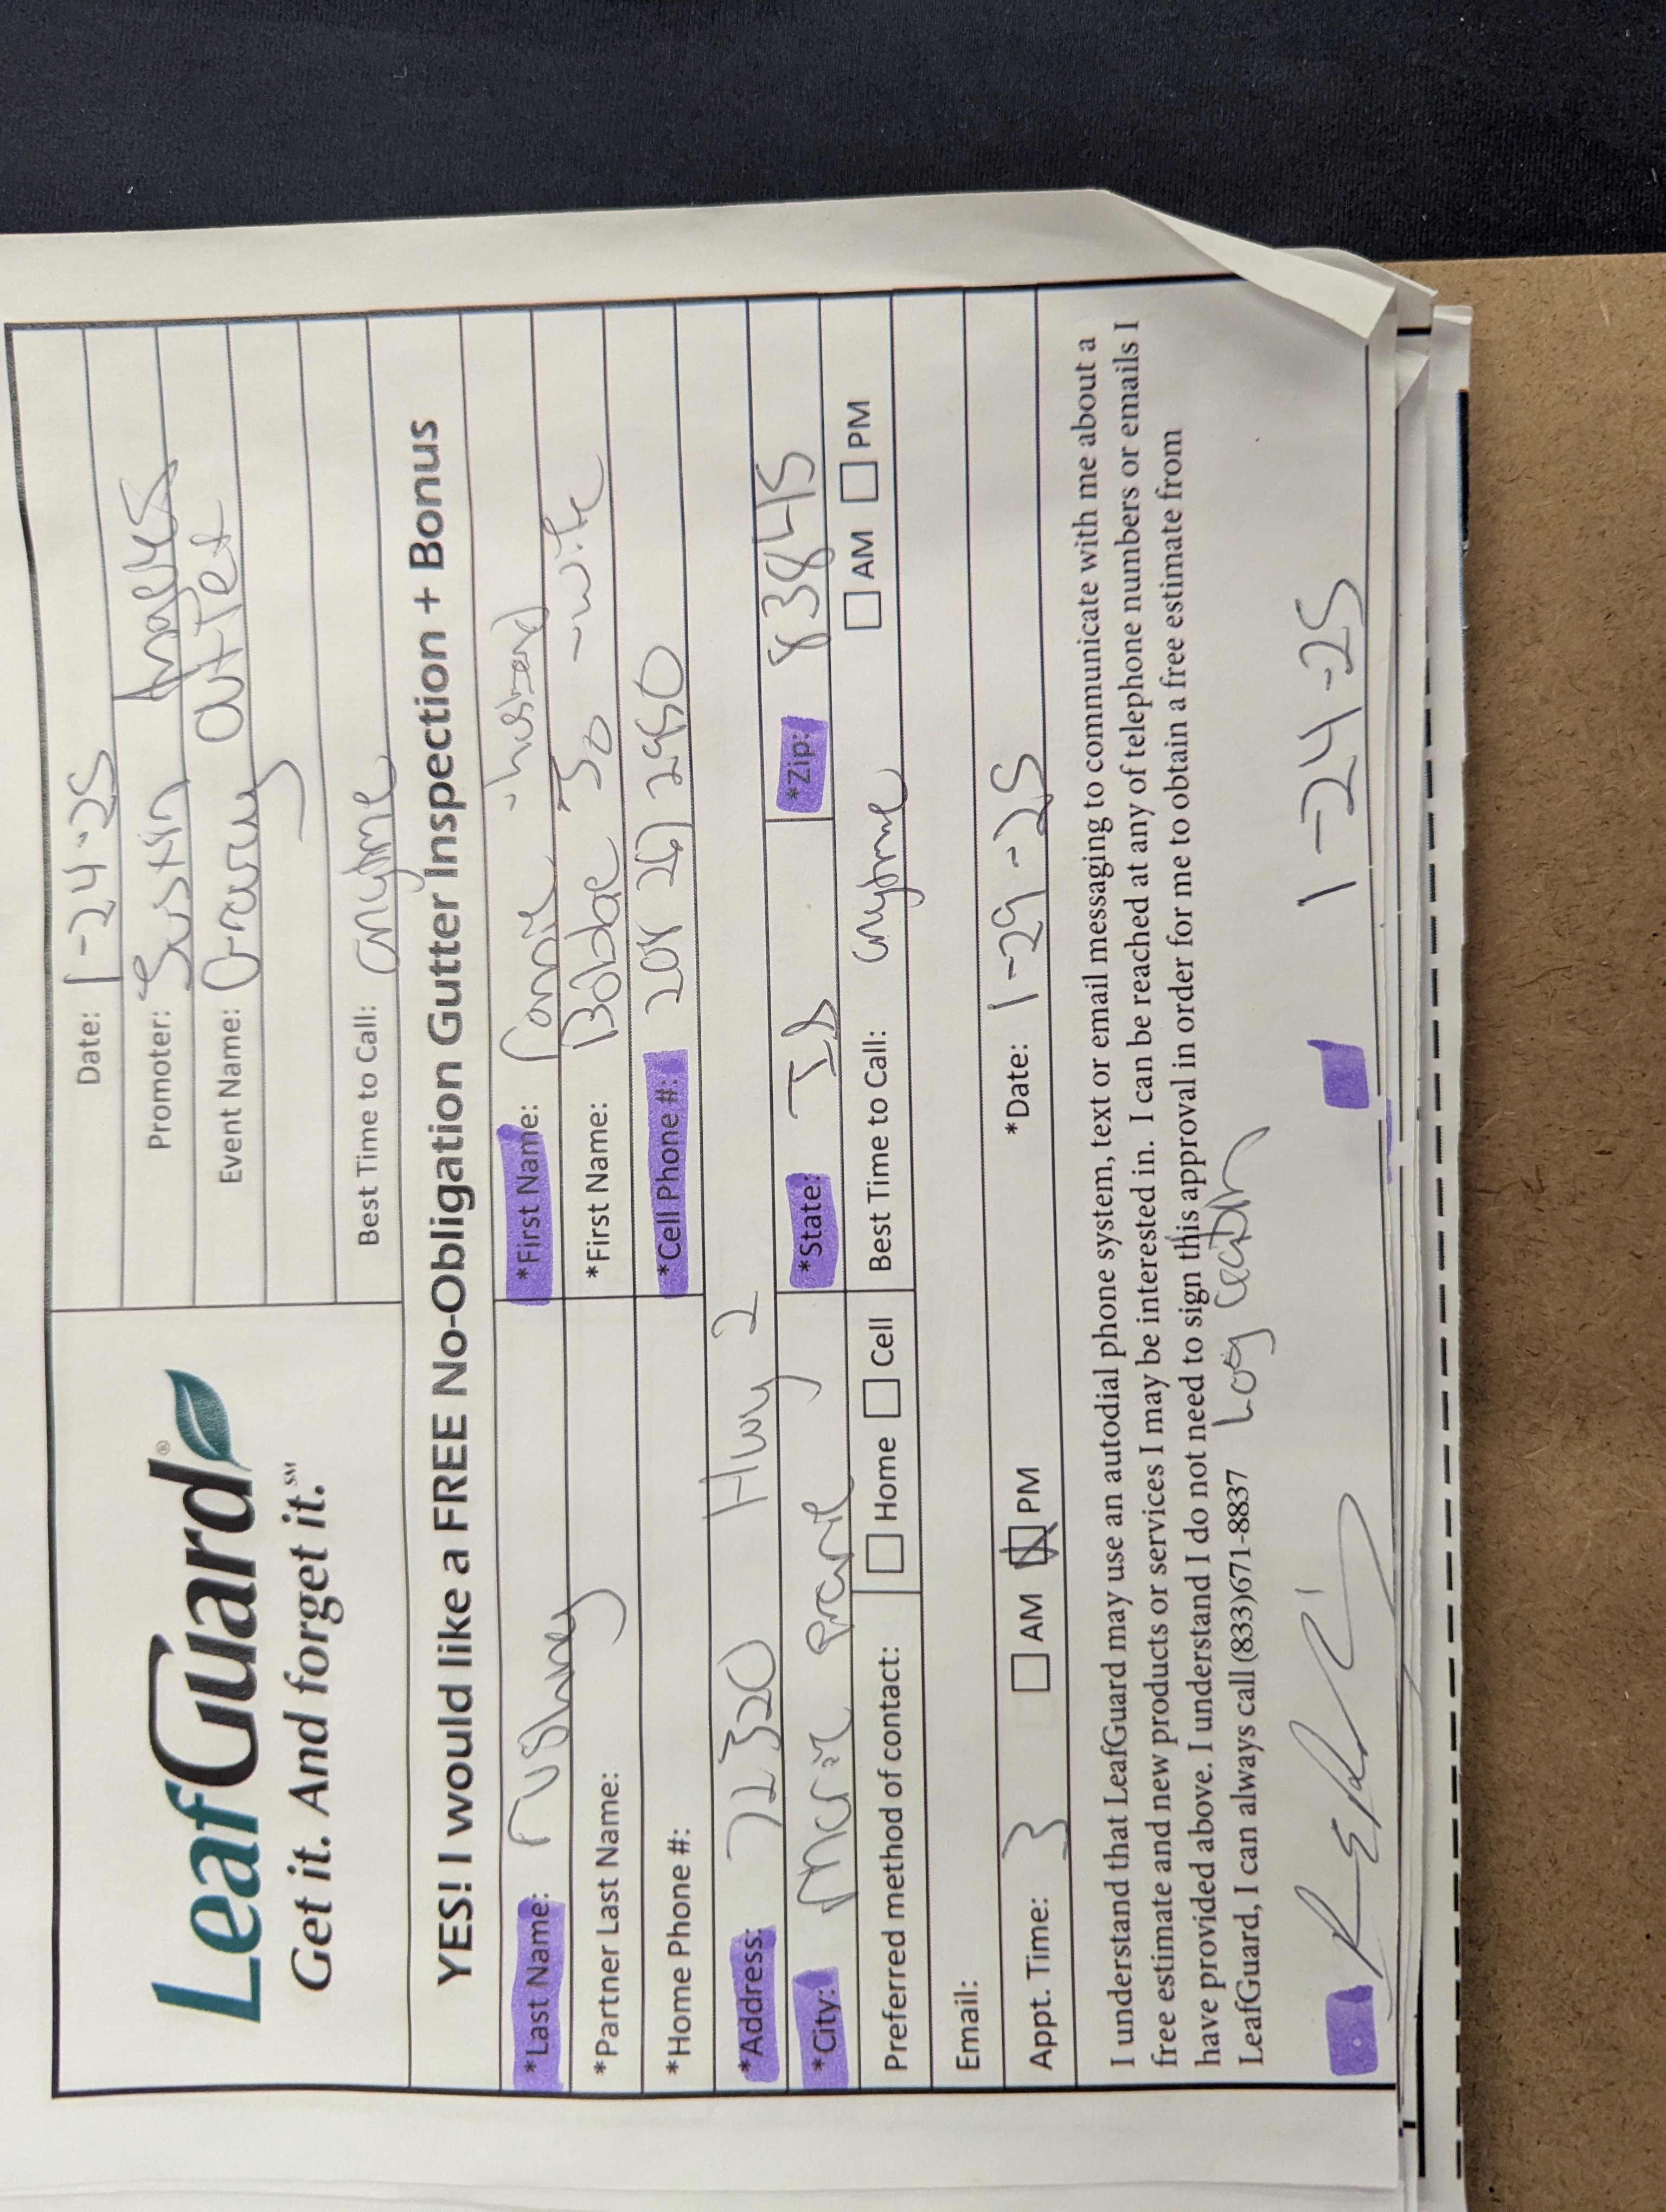 LeafGuard®
Get it. And forget it.℠
Date: 1-24-25
Promoter: Justin
Event Name:
Best Time to Call: anytime
YES! I would like a FREE No-Obligation Gutter Inspection + Bonus
*Last Name: rushing *First Name: -husband
*Partner Last Name: *First Name: Bobbe Jo -wife
*Home Phone #: *Cell Phone #:
*Address: 72320 Hwy 2
*City: *State: ID *Zip: 83845
Preferred method of contact: Home Cell Best Time to Call: anytime AM PM
Email:
Appt. Time: 3 AM PM *Date: 1-29-25
I understand that LeafGuard may use an autodial phone system, text or email messaging to communicate with me about a
free estimate and new products or services I may be interested in. I can be reached at any of telephone numbers or emails I
have provided above. I understand I do not need to sign this approval in order for me to obtain a free estimate from
LeafGuard, I can always call (833)671-8837 Log cabin
1-24-25